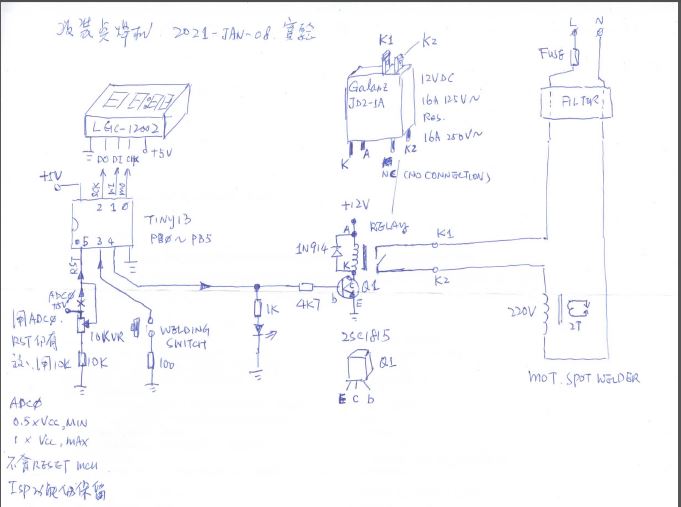 改裝点焊机. 2021-JAN-08. 實驗
LGC-12002
DO DI CLK +5V
+5V
2 1 0
TINY13
PB0~PB5
5 3 4
RST
ADC0
用ADC0.
RST 仍有
10KVR
10K
WELDING
SWITCH
100
ADC0
0.5xVcc, MIN
1 x Vcc, MAX
不會RESET MCU
ISP功能仍保留
K1 K2
Galanz
JD2-1A
12VDC
16A 125V~
Res.
16A 250V~
K A K2
NC (NO CONNECTION)
+12V
A
RELAY
1N914
K
K1
K2
1K
4K7
b C E Q1
2SC1815
Q1
E C b
L N
FUSE
FILTER
220V
2T
MOT. SPOT WELDER